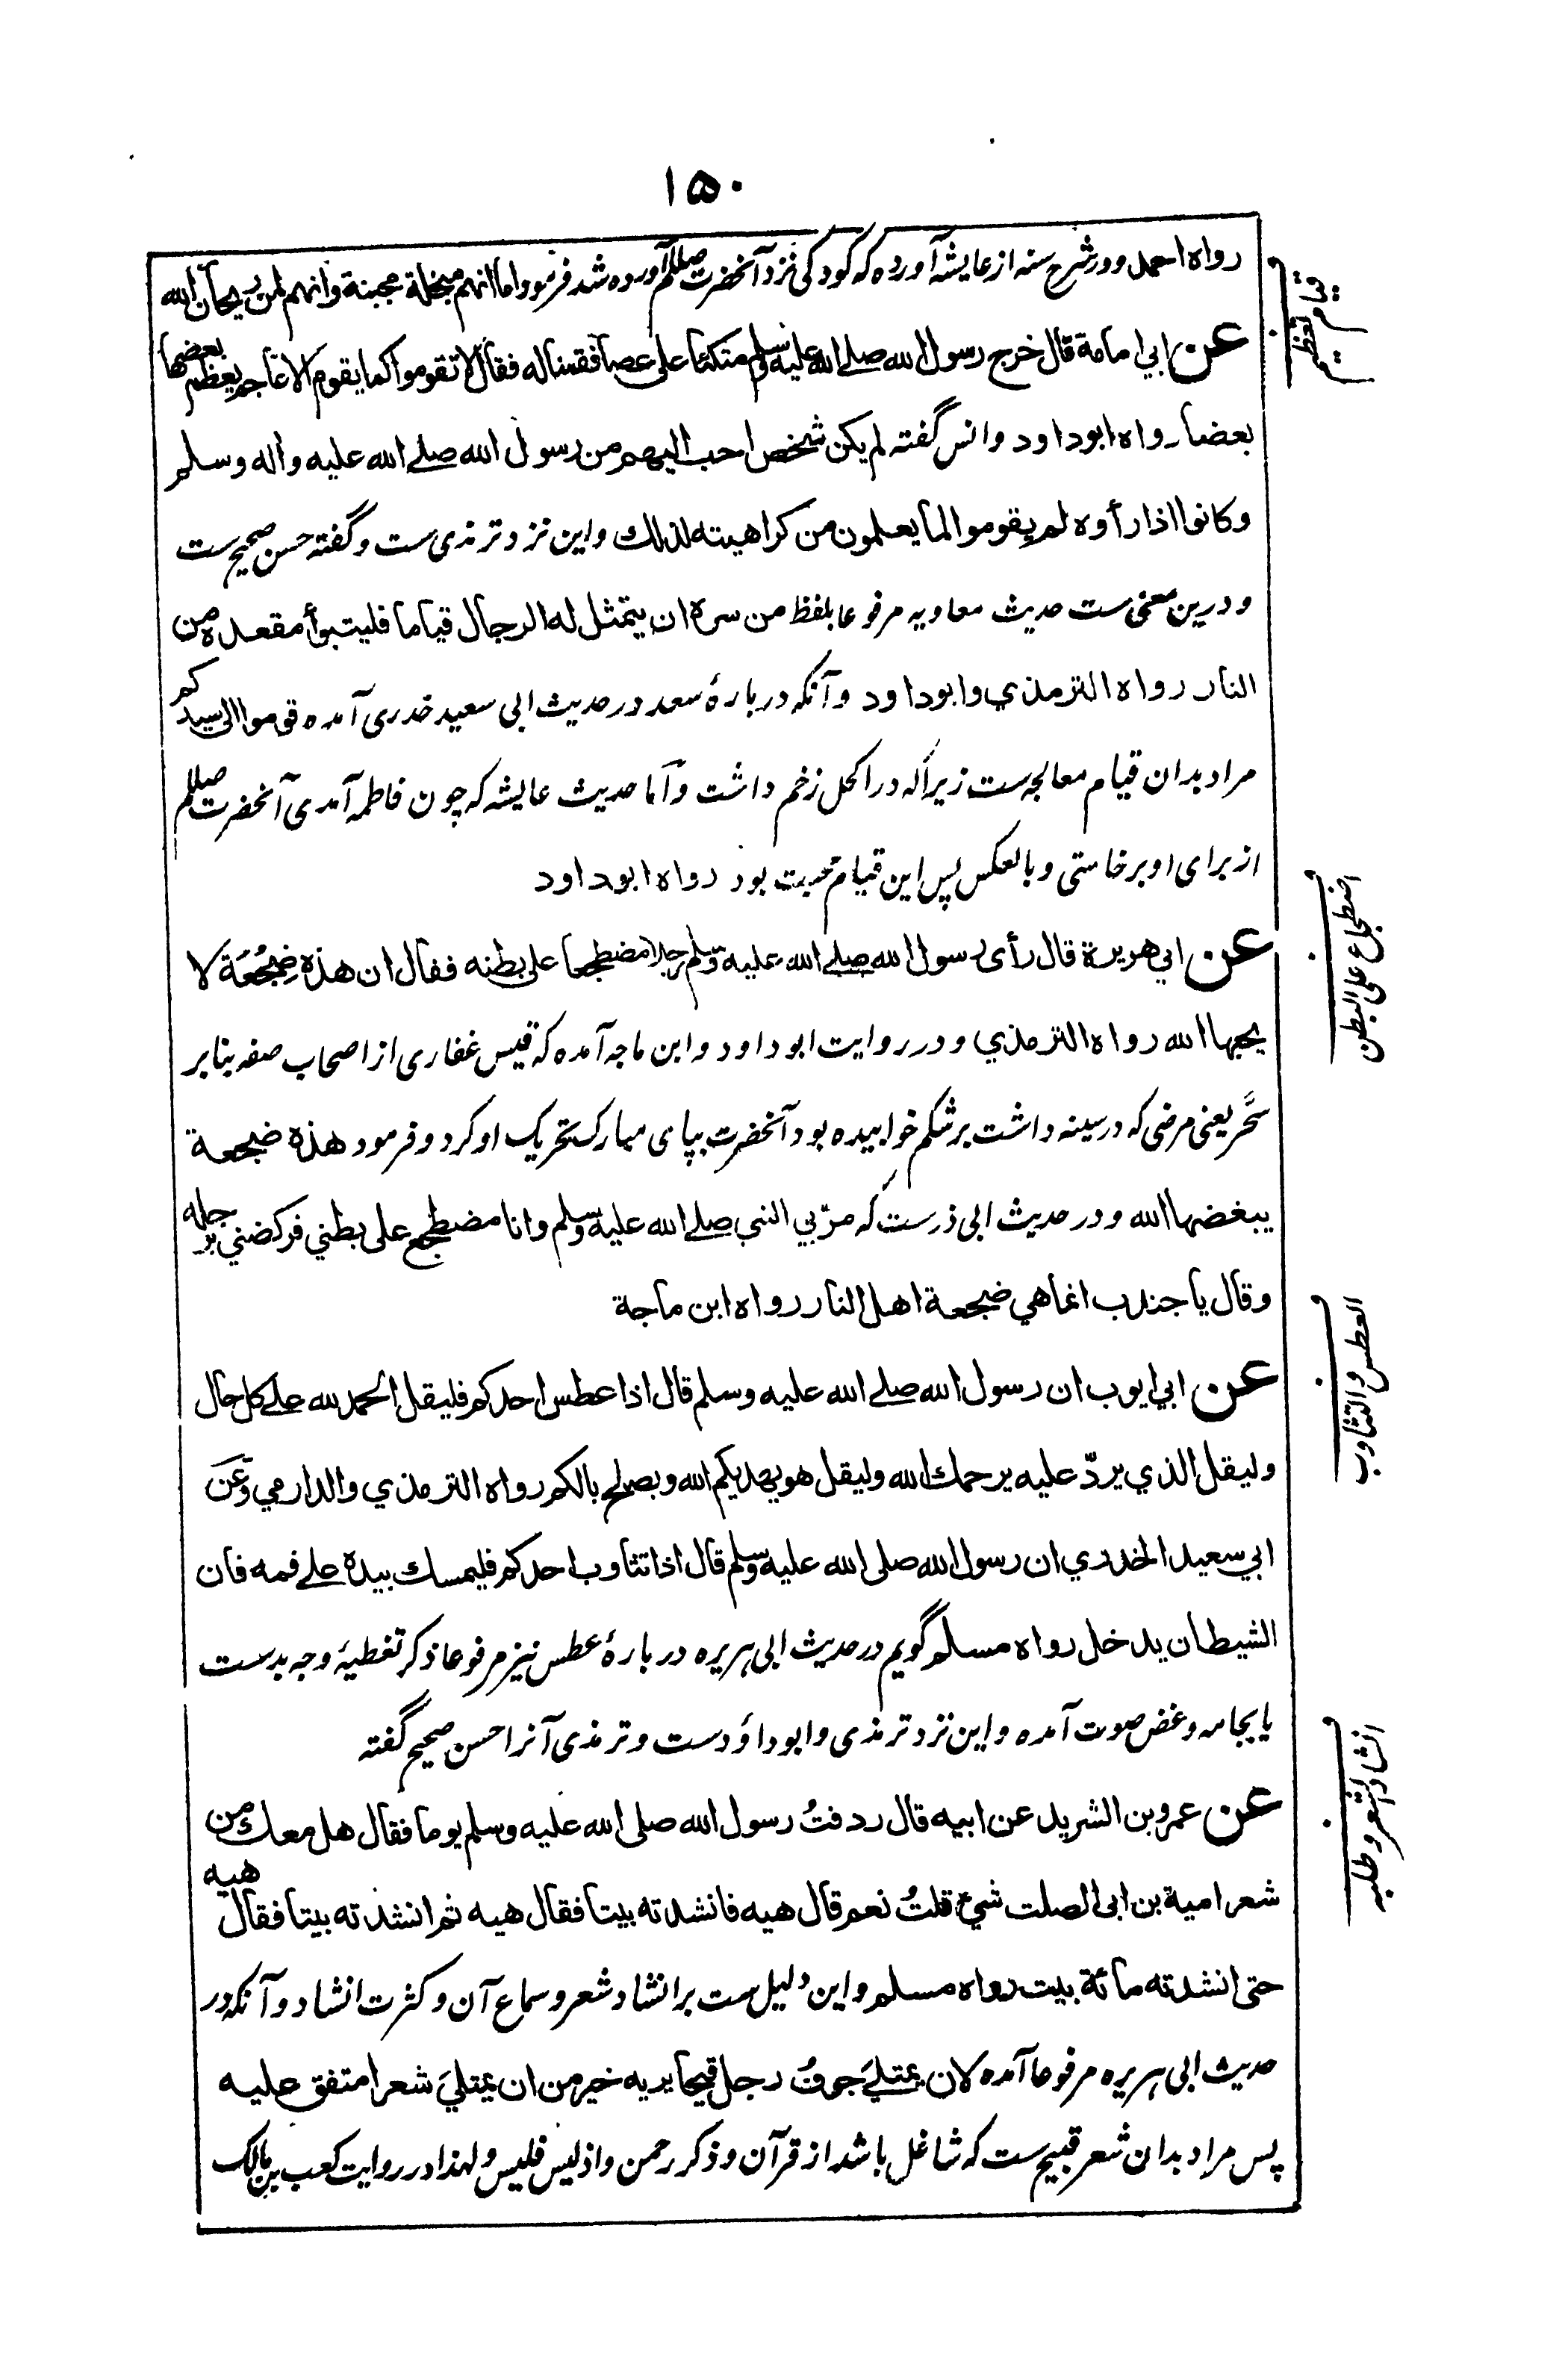 ۱۵۰
رواه احمد ودر شرح سنه از عایشه آورده که کودکی نزد آنحضرت صللم آورده شد فرمود اما انهم مبخلة مجبنة وانهم لمن ریحان الله
عن ابي امامة قال خرج رسول الله صلے الله علیه وسلم متکئا علی عصا فقمنا له فقال لا تقوموا کما یقوم الاعاجم یعظم بعضها
بعضا رواه ابوداود وانس گفته لم یکن شخص احب الیهم من رسول الله صلے الله علیه واله وسلم
وکانوا اذا رأوه لم یقوموا لما یعلمون من کراهیته لذلك واین نزد ترمذی ست وگفته حسن صحیح ست
ودرین معنی ست حدیث معاویه مرفوعا بلفظ من سره ان یتمثل له الرجال قیاما فلیتبوأ مقعده من
النار رواه الترمذي وابوداود وآنکه دربارهٔ سعد در حدیث ابی سعید خدری آمده قوموا الی سیدکم
مراد بدان قیام معالجه ست زیراکه در اکحل زخم داشت واما حدیث عایشه که چون فاطمه آمدی آنحضرت صللم
از برای او برخاستی وبالعکس پس این قیام محبت بود رواه ابوداود
عن ابي هریرة قال رأی رسول الله صلے الله علیه وسلم رجلا مضطجعا علی بطنه فقال ان هذه ضِجْعَة لا
یحبها الله رواه الترمذي ودر روایت ابوداود وابن ماجه آمده که قیس غفاری از اصحاب صفه بنابر
سَحَر یعنی مرضی که در سینه داشت بر شکم خوابیده بود آنحضرت بپای مبارک تحریک او کرد وفرمود هذه ضجعة
یبغضها الله ودر حدیث ابی ذرست که مرّ بي النبي صلے الله علیه وسلم وانا مضطجع علی بطني فرکضني برجله
وقال یا جندب انما هي ضجعة اهل النار رواه ابن ماجة
عن ابي ایوب ان رسول الله صلے الله علیه وسلم قال اذا عطس احدکم فلیقل الحمد لله علے کل حال
ولیقل الذي یردّ علیه یرحمك الله ولیقل هو یهدیکم الله ویصلح بالکم رواه الترمذي والدارمي وعن
ابي سعید الخدري ان رسول الله صلی الله علیه وسلم قال اذا تثاوب احدکم فلیمسك بیده علے فمه فان
الشیطان یدخل رواه مسلم گویم در حدیث ابی هریره دربارهٔ عطس نیز مرفوعا ذکر تغطیهٔ وجه بدست
یا بجامه وغض صوت آمده واین نزد ترمذی وابوداؤدست وترمذی آنرا حسن صحیح گفته
عن عمرو بن الشرید عن ابیه قال ردفتُ رسول الله صلی الله علیه وسلم یوما فقال هل معك من
شعر امیة بن ابی الصلت شيء قلتُ نعم قال هیه فانشدته بیتا فقال هیه ثم انشدته بیتا فقال هیه
حتی انشدته مائة بیت رواه مسلم واین دلیل ست بر انشاد شعر وسماع آن وکثرت انشاد وآنکه در
حدیث ابی هریره مرفوعا آمده لان یمتلےَ جوفُ رجل قیحا یریه خیر من ان یمتليَ شعرا متفق علیه
پس مراد بدان شعر قبیح ست که شاغل باشد از قرآن وذکر رحمن واذ لیس فلیس ولهذا در روایت کعب بن مالک
قیام تعظیم
اضطجاع علی البطن
العطس والتثاوب
انشاد الشعر وطلبه